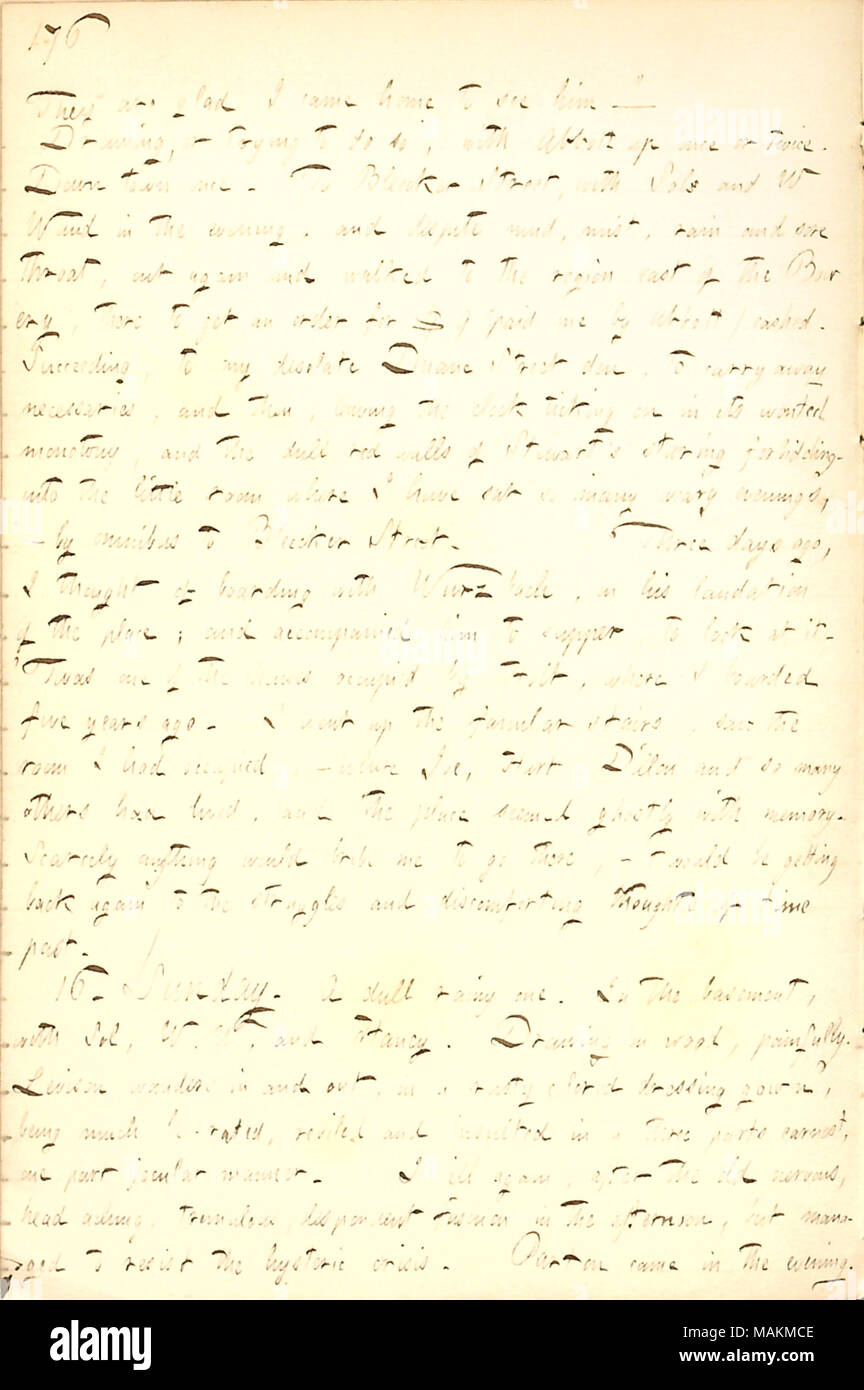 176
They are glad I came home to see him —"
Drawing, or trying to do so, with Abbott up once or twice.
Down town once. To Bleecker Street, with Sols and W
Waud in the evening, and despite mud, mist, rain and sore
throat, out again and walked to the region east of the Bow
ery, there to get an order for $ (paid me by Abbott) cashed.
Succeeding, to my desolate Duane Street den, to carry away
necessaries, and then, leaving the clock ticking on in its wonted
monotony, and the dull red walls of Stewart's staring forbidding-
into the little room where I have sat so many weary evenings,
— by omnibus to Bleecker Street. Three days ago,
I thought of boarding with Wurzbach, on his laudation
of the place; and accompanied him to supper to look at it.
'Twas one of the houses occupied by Holt, where I boarded
five years ago. I went up the familiar stairs, saw the
room I had occupied, — where Joe, Hart, Dillon and so many
others had lived, and the place seemed ghostly with memory.
Scarcely anything would bribe me to go there, — 'twould be getting
back again to the struggles and discomforting thoughts of time
past.
16. Sunday. A dull rainy one. In the basement,
with Sol, W. W, and Haney. Drawing on wood, painfully.
Levison wanders in and out, in a rusty color'd dressing gown,
being much be-rated, reviled and insulted in a three parts earnest,
one part jocular manner. I ill again, after the old nervous,
head aching, tremulous, despondent fashion in the afternoon, but mana-
ged to resist the hysteric crisis. Parton came in the evening.
alamy
Image ID: MAKMCE
www.alamy.com